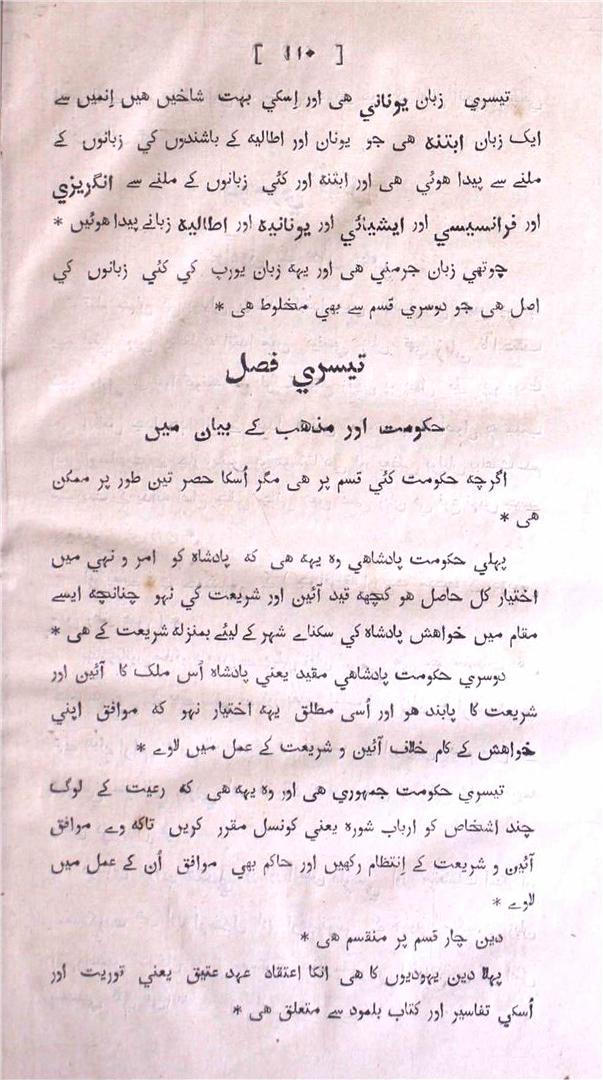 [ ۱۱۰ ]
تیسري زبان یوناني هی اور اِسکي بہت شاخیں هیں اِنمیں سے
ایک زبان ابتنہ هی جو یونان اور اطالیہ کے باشندوں کي زبانوں کے
ملنے سے پیدا هوئي هی اور ابتنہ اور کئي زبانوں کے ملنے سے انگریزي
اور فرانسیسي اور ایشیائي اور یونانیہ اور اطالیہ زبانے پیدا هوئیں *
چوتھي زبان جرمني هی اور یہہ زبان یورپ کي کئي زبانوں کي
اصل هی جو دوسري قسم سے بھي مخلوط هی *
تیسري فصل
حکومت اور مذهب کے بیان میں
اگرچہ حکومت کئي قسم پر هی مگر اُسکا حصر تین طور پر ممکن
هی *
پہلي حکومت پادشاهي وہ یہہ هی کہ پادشاہ کو امر و نہي میں
اختیار کل حاصل هو کچھہ قید آئین اور شریعت کي نہو چنانچہ ایسے
مقام میں خواهش پادشاہ کي سکناے شہر کے لیئے بمنزلہ شریعت کے هی *
دوسري حکومت پادشاهي مقید یعني پادشاہ اُس ملک کا آئین اور
شریعت کا پابند هو اور اُسي مطلق یہہ اختیار نہو کہ موافق اپني
خواهش کے کام خلاف آئین و شریعت کے عمل میں لاوے *
تیسري حکومت جمہوري هی اور وہ یہہ هی کہ رعیت کے لوگ
چند اشخاص کو ارباب شورہ یعني کونسل مقرر کریں تاکہ وے موافق
آئین و شریعت کے اِنتظام رکھیں اور حاکم بھي موافق اُن کے عمل میں
لاوے *
دین چار قسم پر منقسم هی *
پہلا دین یہودیوں کا هی انکا اعتقاد عہد عتیق یعني توریت اور
اُسکي تفاسیر اور کتاب بلمود سے متعلق هی *